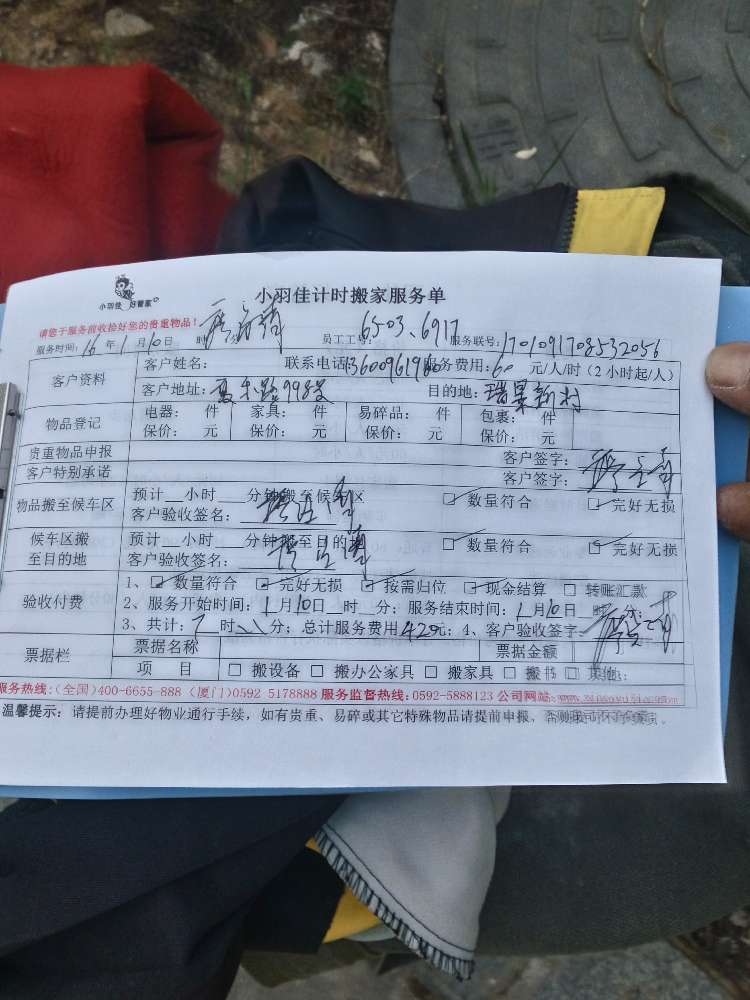 小羽佳 好管家
小羽佳计时搬家服务单
请您于服务前收拾好您的贵重物品！
服务时间：16年1月10日 时 分 员工工号：6503、6917 服务联号：1701091708532056
客户资料
客户姓名： 联系电话 服务费用：60 元/人/时（2 小时起/人）
客户地址：夏禾路998号 目的地：瑞景新村
物品登记
电器： 件 家具： 件 易碎品： 件 包裹： 件
保价： 元 保价： 元 保价： 元 保价： 元
贵重物品申报 客户签字：
客户特别承诺 客户签字：
物品搬至候车区
预计__小时__分钟搬至候车区 ☑ 数量符合 ☑ 完好无损
客户验收签名：
候车区搬至目的地
预计__小时__分钟搬至目的地 ☑ 数量符合 ☑ 完好无损
客户验收签名：
验收付费
1、☑ 数量符合 ☑ 完好无损 ☑ 按需归位 ☑ 现金结算 □ 转账汇款
2、服务开始时间：1月10日__时__分；服务结束时间：1月10日 时 分；
3、共计：7 时 分；总计服务费用420元；4、客户验收签字
票据栏
票据名称 票据金额
项 目 □ 搬设备 □ 搬办公家具 □ 搬家具 □ 搬书 □ 其他：
服务热线：(全国)400-6655-888 (厦门)0592 5178888 服务监督热线：0592-5888123 公司网站：
温馨提示：请提前办理好物业通行手续，如有贵重、易碎或其它特殊物品请提前申报，